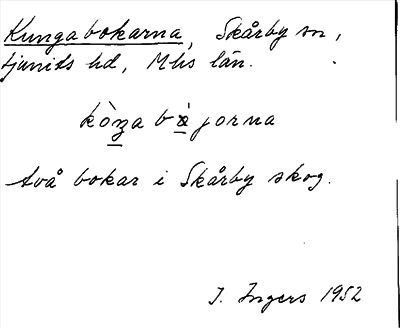 Kungabokarna, Skårby sn,
Ljunits hd, Mhs län.
två bokar i Skårby skog.
I. Ingers 1952